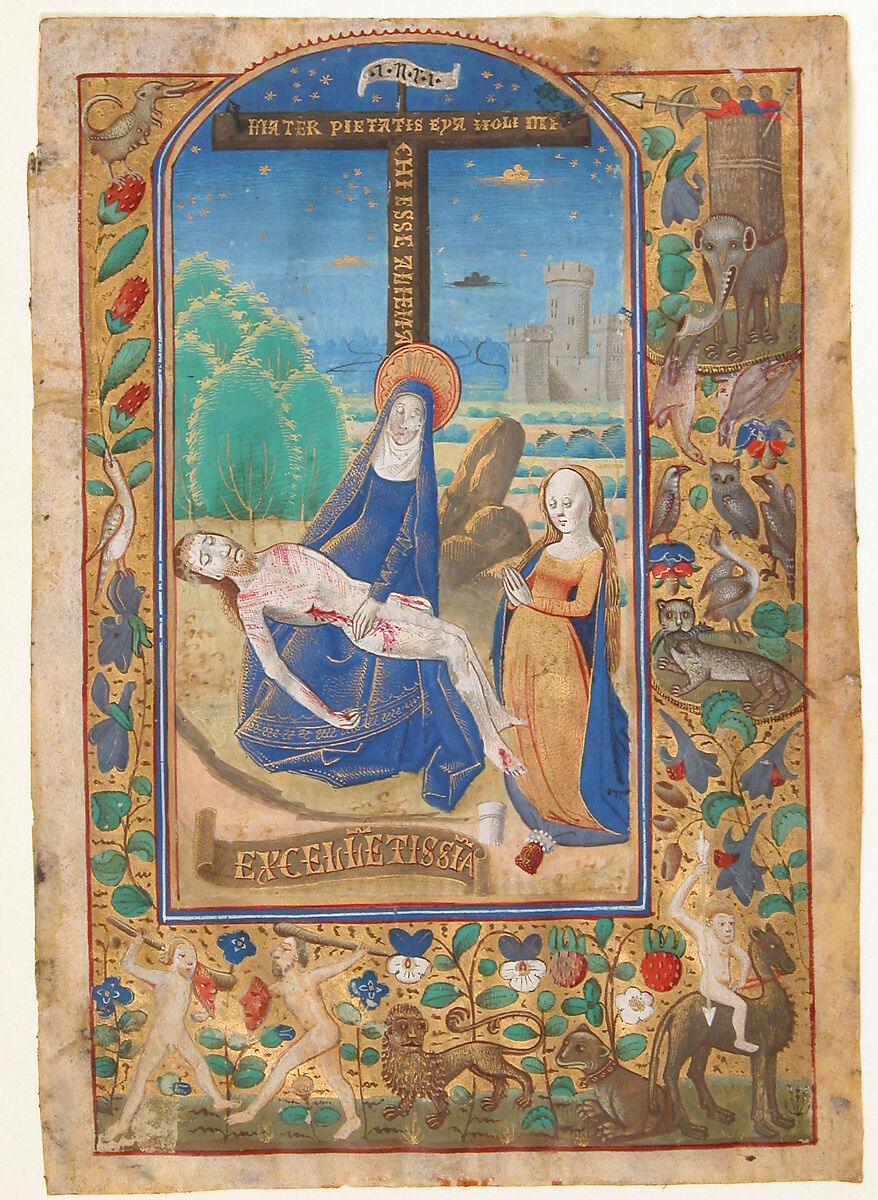 ·I·N·R·I·
MATER PIETATIS EYA NOLI MI
CHI ESSE
EXCELLĒTISSIA̅